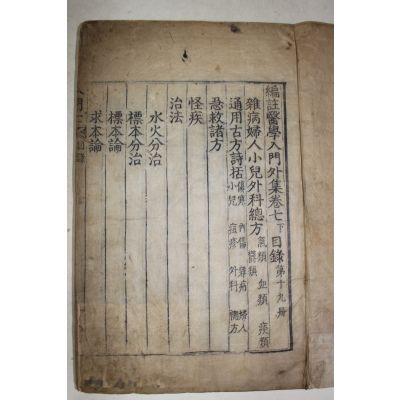 編註醫學入門外集卷七下目錄 第十九冊
雜病婦人小兒外科總方 氣類 血類 痰類
通用古方詩括 傷寒 內傷 雜病 婦人
小兒 痘疹 外科
急救諸方
怪疾
治法
水火分治
標本分治
標本論
求本論